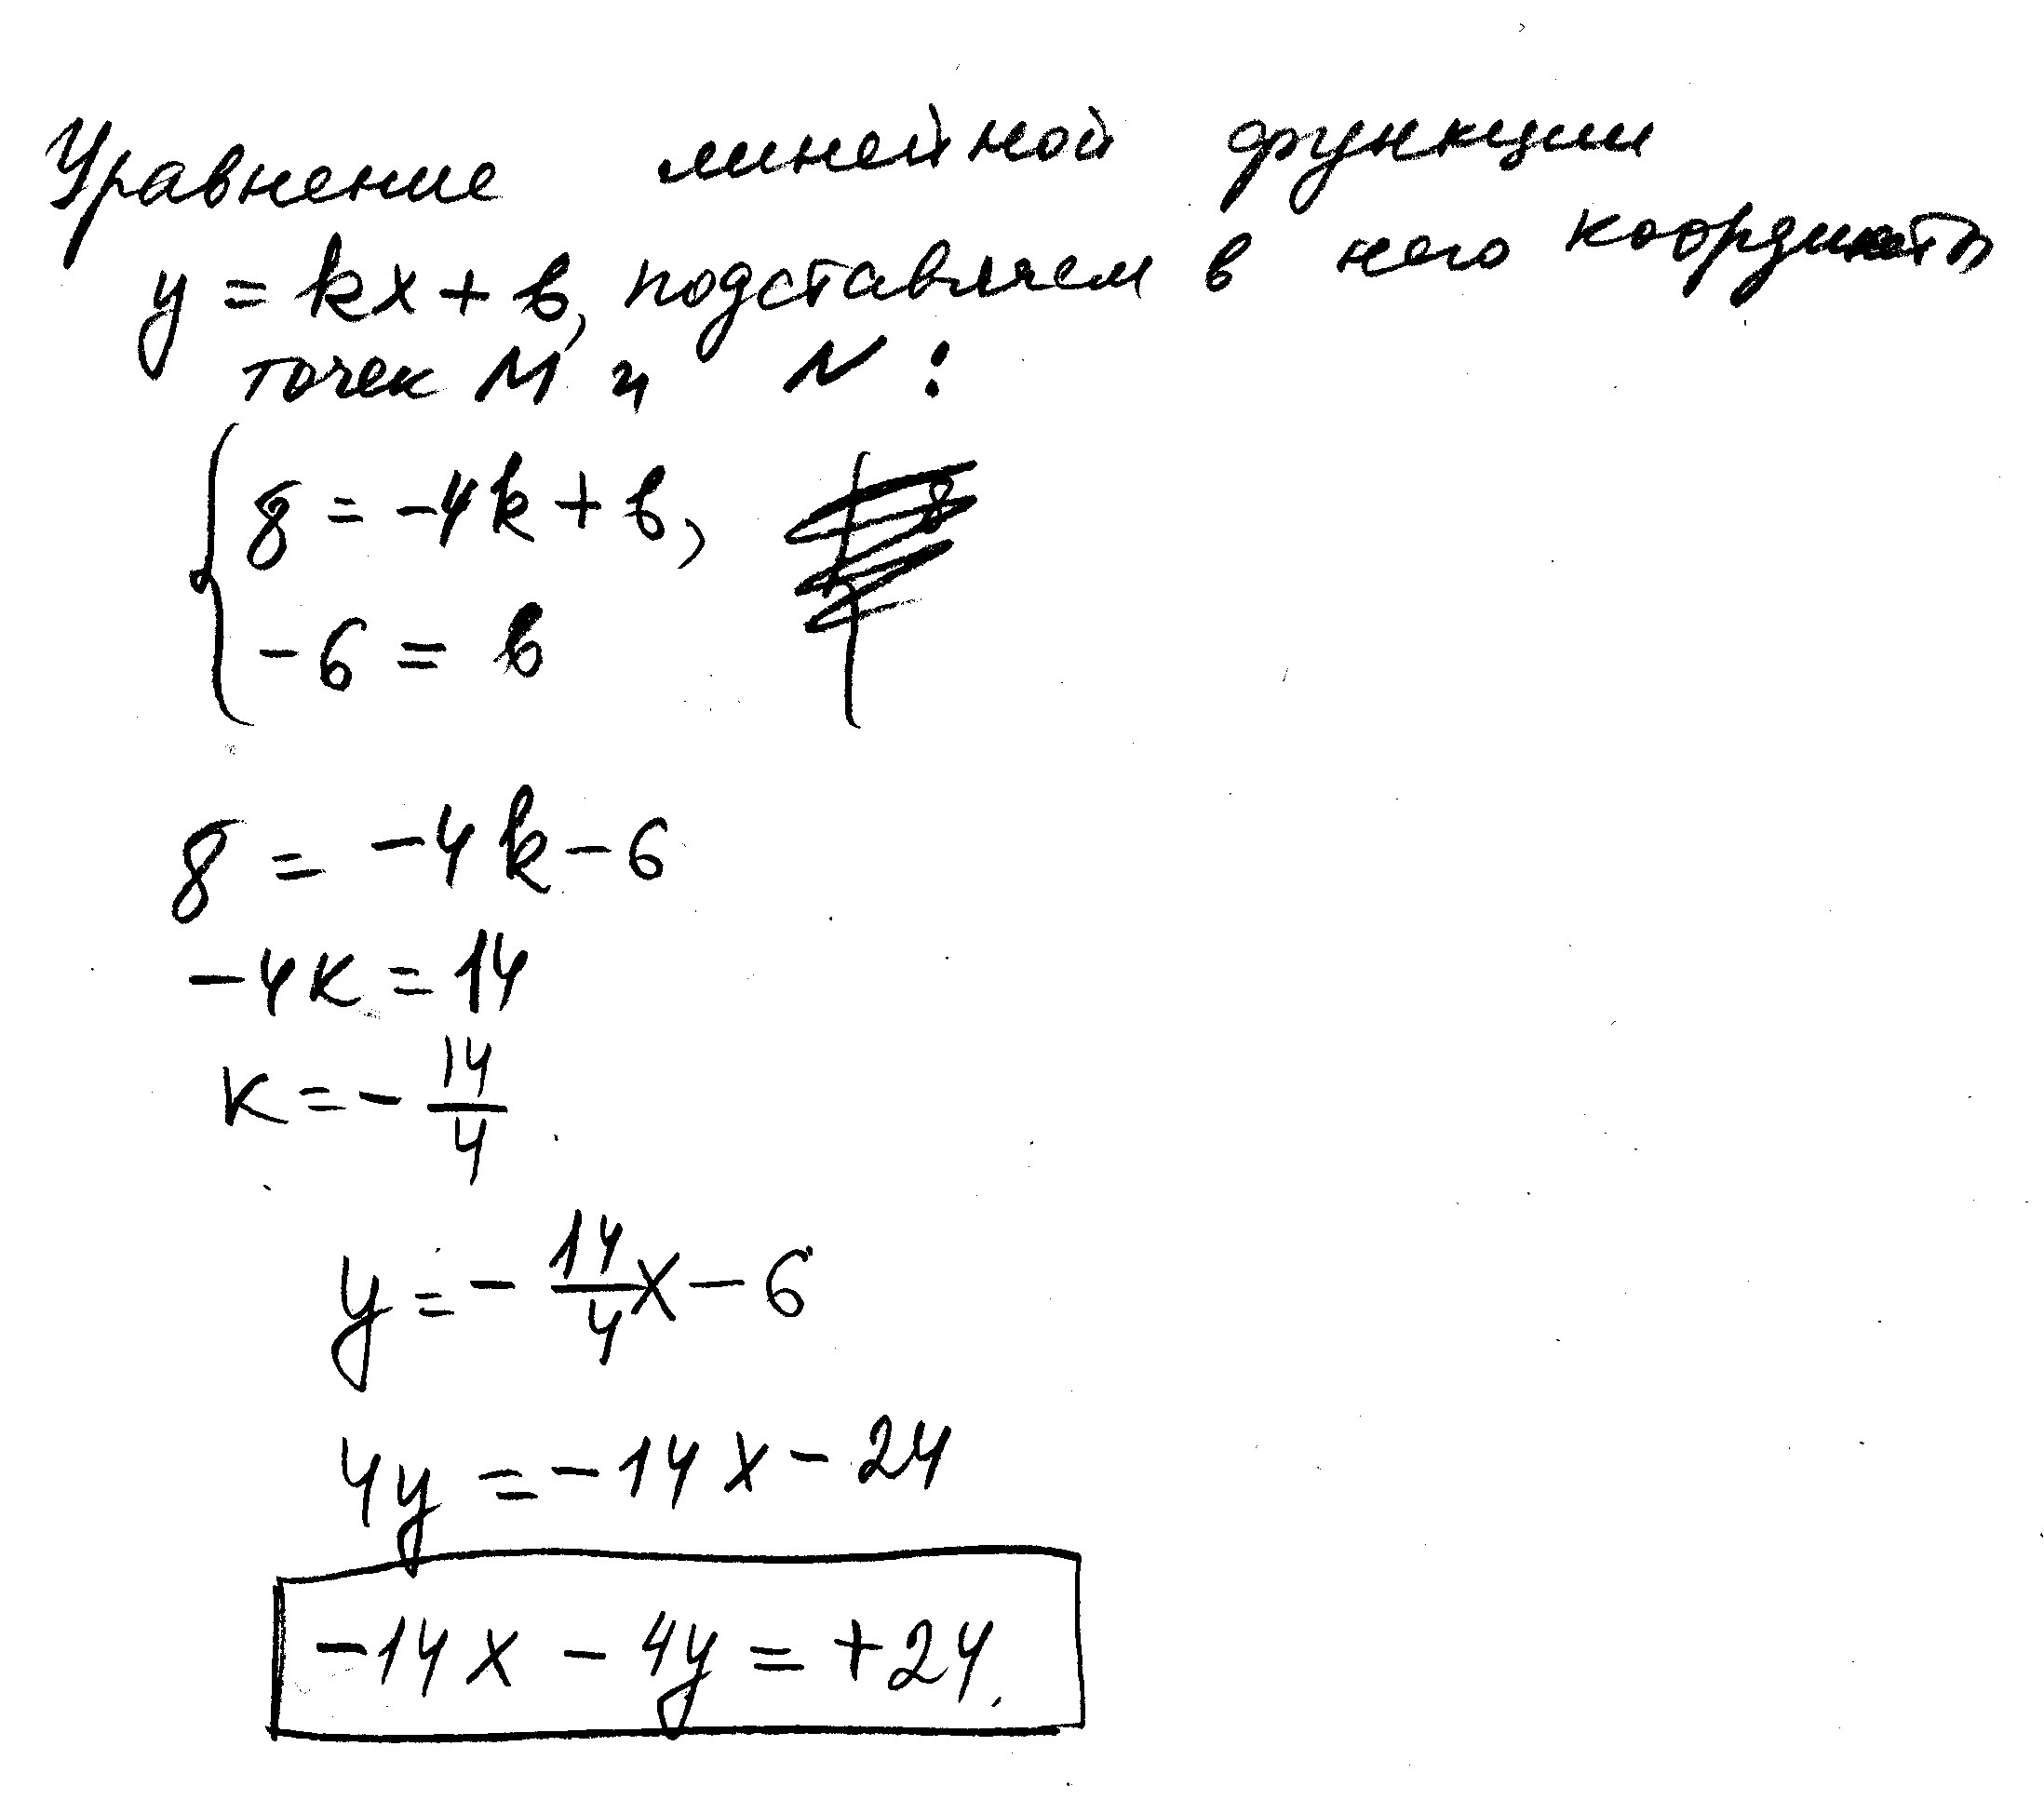 Уравнение линейной функции
y = kx + b, подставляем в него координаты
точек M и N:
8 = -4k + b,
-6 = b
8 = -4k - 6
-4k = 14
k = - 14/4
y = - 14/4 x - 6
4y = -14x - 24
-14x - 4y = +24.